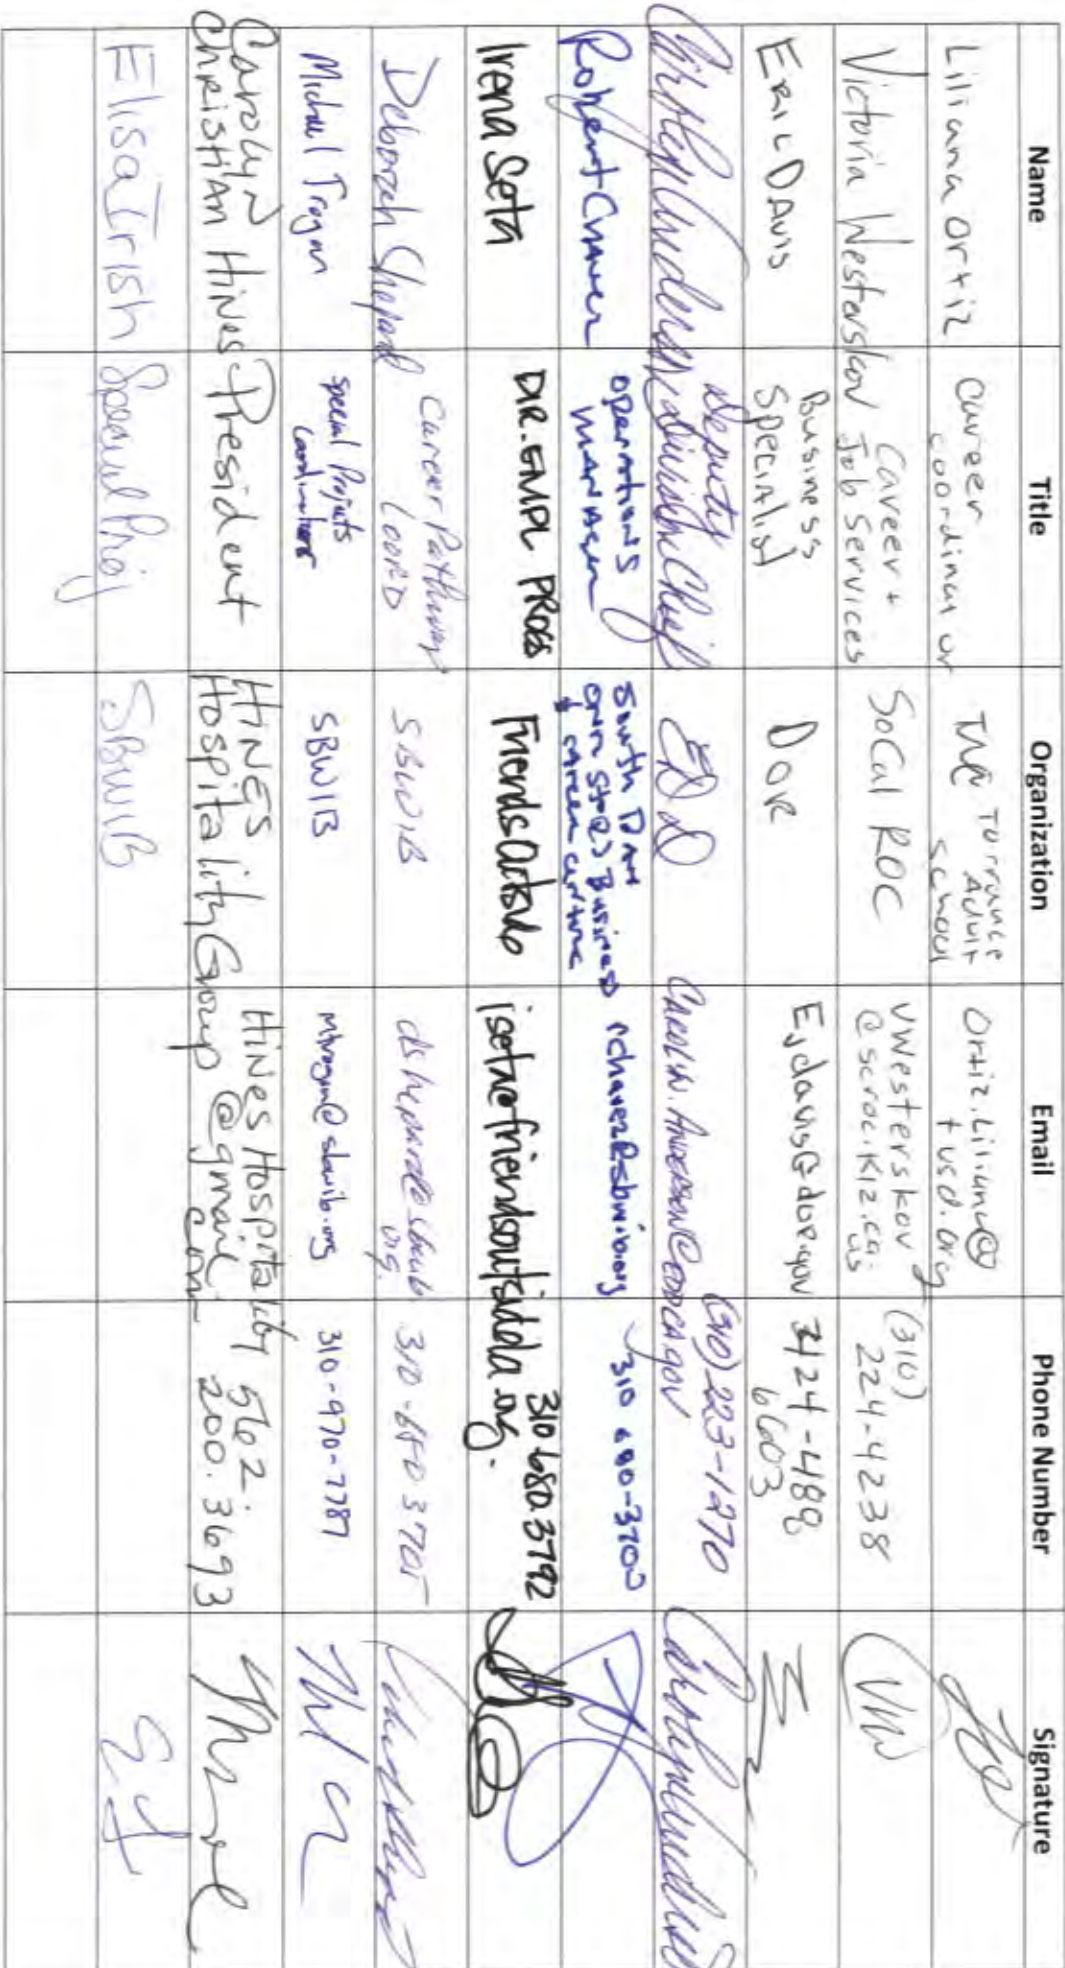 Name Title Organization Email Phone Number Signature
Liliana Ortiz Career Coordinator Torrance Adult School Ortiz.Liliana@tusd.org
Victoria Westerskov Career + Job Services SoCal ROC vwesterskov@scroc.k12.ca.us (310) 224-4238 VW
Eric Davis Business Specialist DOR Ejdavis@dor.gov
Carolyn Anderson deputy division Chief EDD Carolyn.Anderson@edd.ca.gov (310) 223-1270
Robert Chavez operations Manager South Bay One Stop Business & Career Centers rchavez@sbwib.org 310 680-3700
Irena Seta DIR. EMPL PROGS FriendsOutside iseta@friendsoutsidela.org. 310 680.3792
Deborah Shepard Career Pathway COORD SBWIB dshepard@sbwib.org. 310-680 3705
Michael Trogan Special Projects Coordinator SBWIB mtrogan@sbwib.org 310-970-7787
Carolyn Christian Hines President Hines Hospitality Group HinesHospitality@gmail.com 562. 200.3693
Elisa Irish Special Proj SBWIB